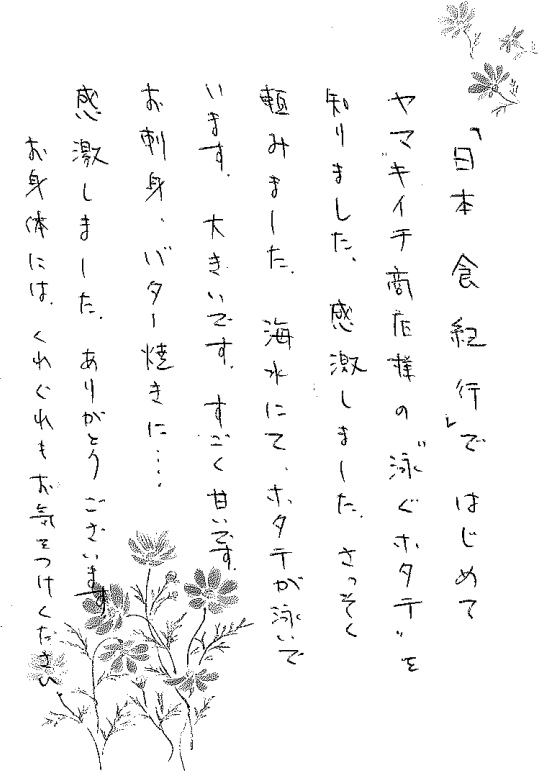 「日本 食紀行」で はじめて
ヤマキイチ商店様の“泳ぐホタテ”を
知りました、感激しました。さっそく
頼みました。海水にて、ホタテが泳いで
います。大きいです。すごく甘いです。
お刺身、バター焼きに…
感激しました。ありがとうございます
お身体には、くれぐれもお気をつけください。